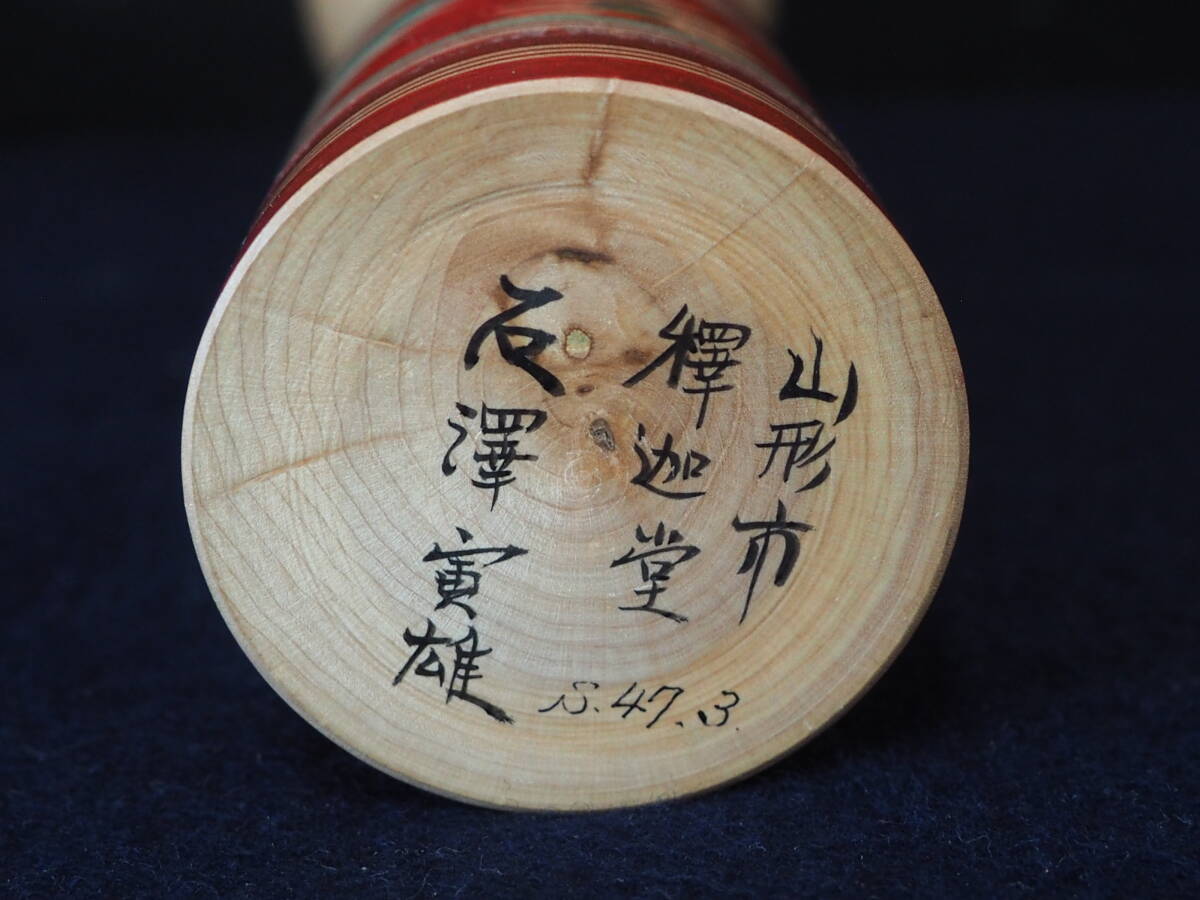 山形市
釋迦堂
石澤寅雄
S.47.3